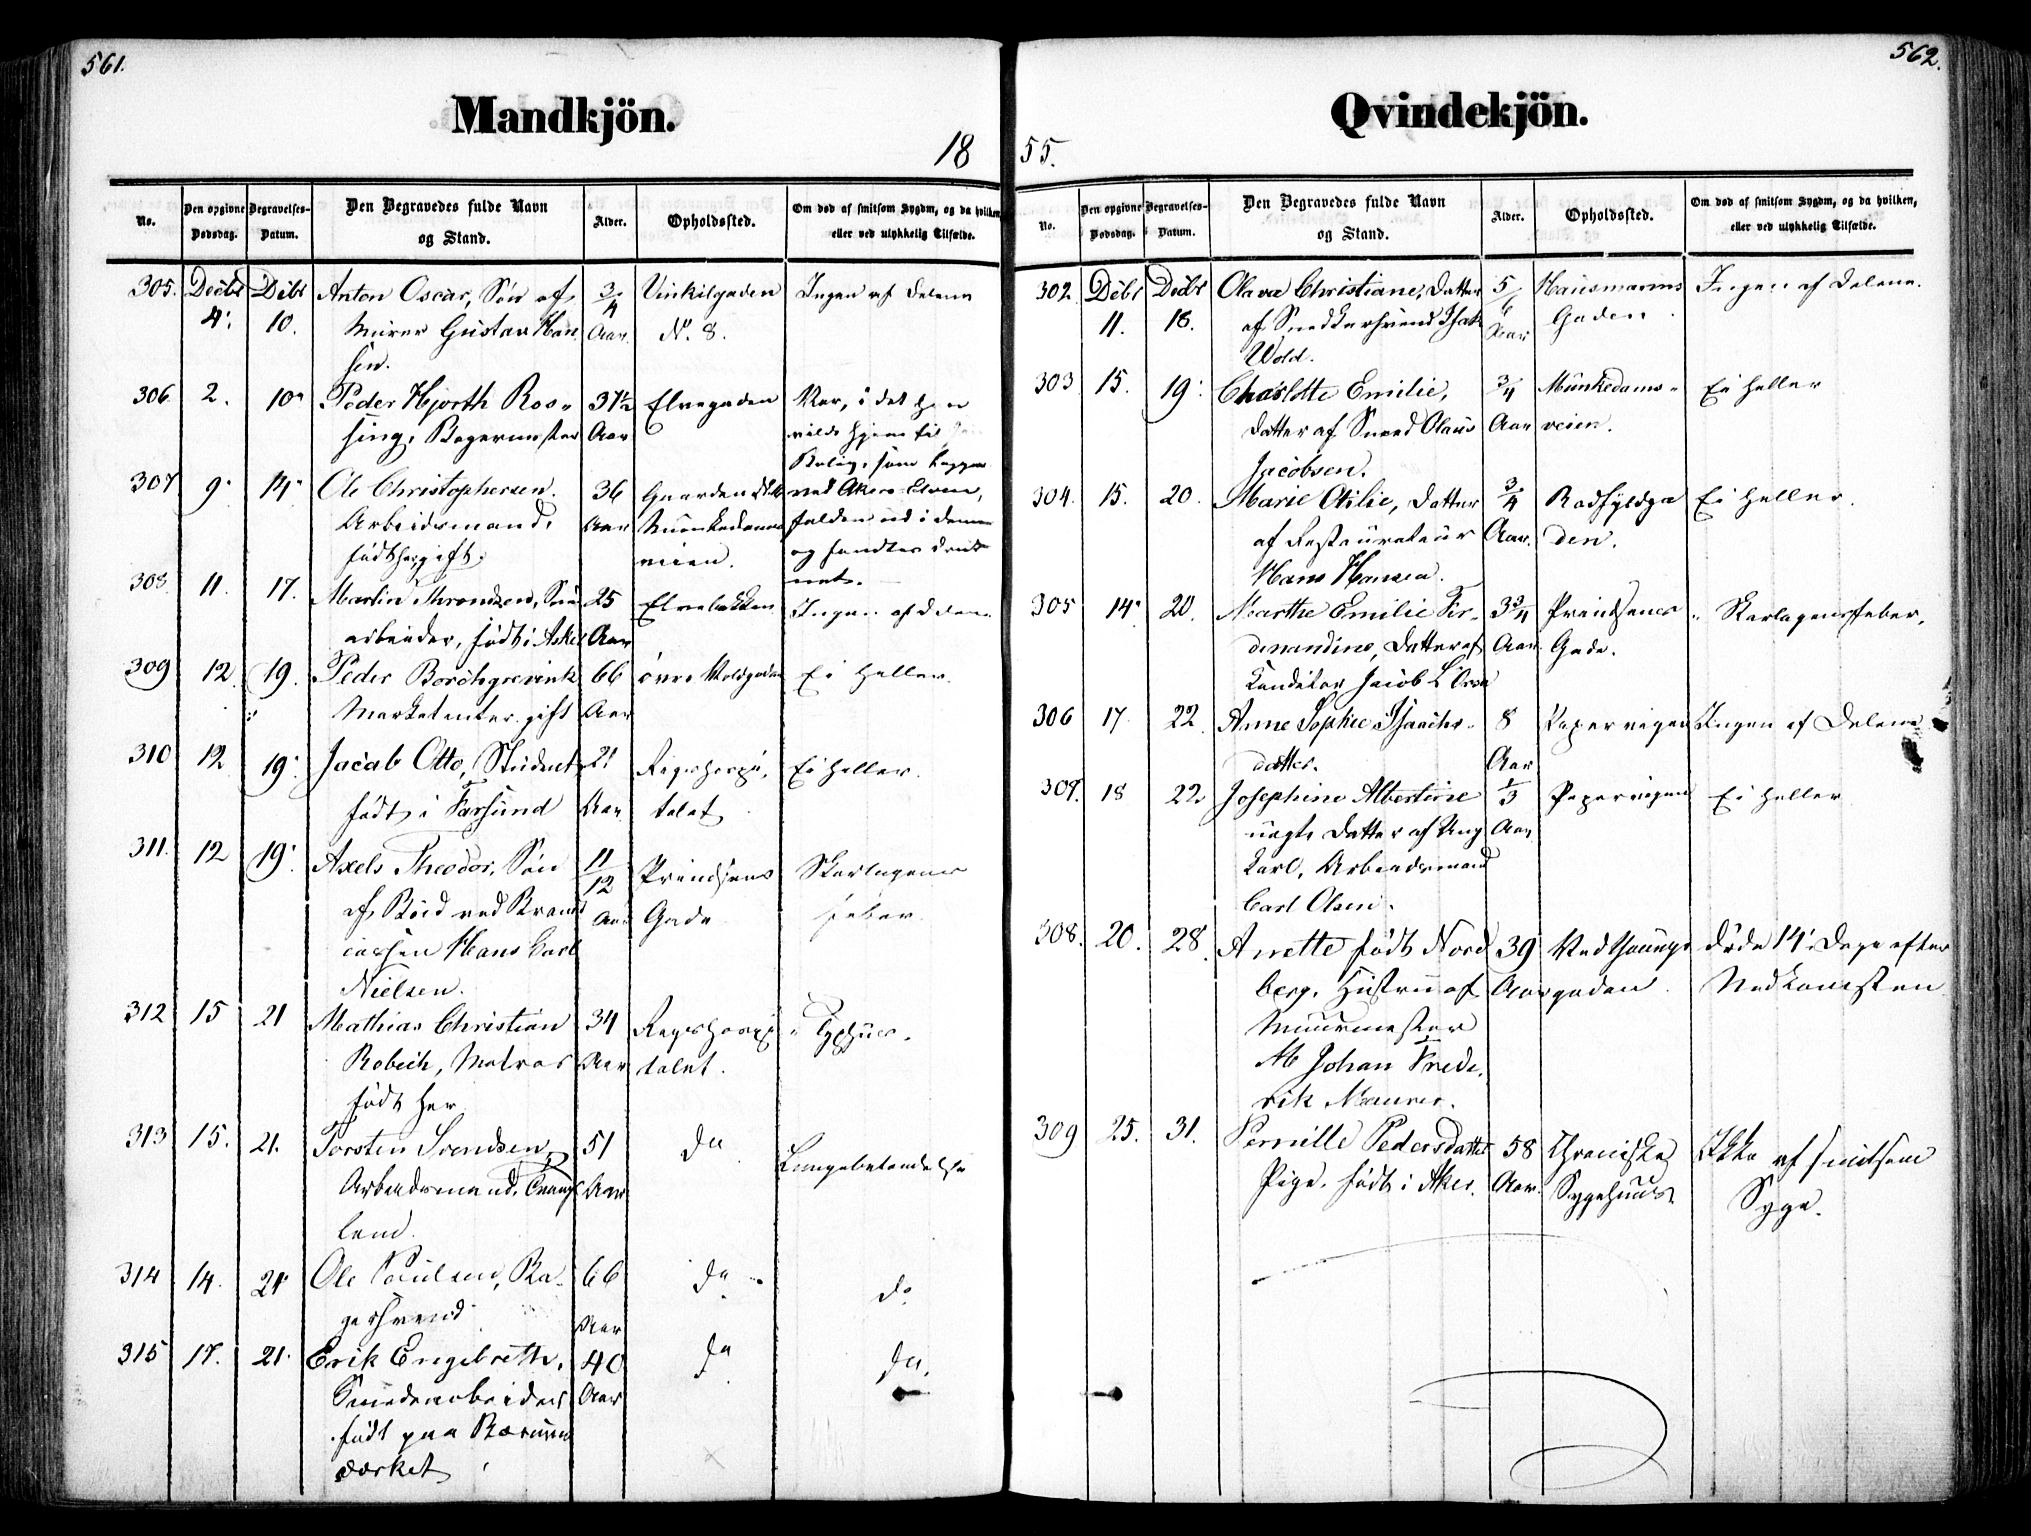 561.
Mandkjön.
18
No.
Den opgivne Dødsdag.
Begravelses-Datum.
Den Begravedes fulde Navn og Stand.
Alder.
Opholdssted.
Om død af smitsom Sygdm, og da hvilken, eller ved ulykkelig Tilfælde.
305. Decbr 4. Decbr 10. Anton Oscar, Søn af 3/4 Vinkelgaden Ingen af Delene
Murer Gustav Han Aar. No. 8.
sen.
306 2. 10. Peder Hjorth Ros- 37½ Elvegaden Var, i det han
sing, Bagermester Aar vilde hjem til
Bolig, som ligger
307 9. 14. Ole Christophersen. 36 Gaarden ved Akers-Elven,
Arbeidsmand, Aar Munkedams falden ud i denne
født her, gift. veien. og fandtes druk
net.
308. 11. 17. Martin Throndsen, 25 Elvebakken Ingen af Delene
arbeider, født i Asker Aar
309 12. 19. Peder Borchgrevink 66 øvre Voldgaden Ei heller.
Marketenter. gift Aar
310 12 19. Jacob Otto, Student 21 Rigshospi- Ei heller.
født i Farsund Aar. talet
311. 12 19. Axels Theodor, Søn 11/12 Prindsens Skarlagens
af Bud ved Brand Aar Gade feber.
cassen Hans Carl
Nielsen.
312 15 21 Mathias Christian 34 Rigshospi Typhus.
Robech, Matros Aar talet.
født her
313 15. 21. Torsten Svendsen 51 do Lungebetændelse
Arbeidsmand, Aar
land.
314 14. 21. Ole Poulsen, Ba- 66 do do
gersvend Aar
315 17. 21. Erik Engebreth. 40 do do.
Smedearbeider Aar
født paa Bærums
værket
562.
Qvindekjön.
55.
No.
Den opgivne Dødsdag.
Begravelses-Datum.
Den Begravedes fulde Navn og Stand.
Alder.
Opholdssted.
Om død af smitsom Sygdm, og da hvilken, eller ved ulykkelig Tilfælde.
302. Decbr 11. Decbr 18. Olava Christiane, Datter 5/6 Hausmanns Ingen af Delene.
af Snedkersvend Isak Aar Gaden.
Wold.
303 15. 19. Charlotte Emilie, 3/4 Munkedams- Ei heller
Datter af Smed Olaus Aar veien.
Jacobsen.
304. 15. 20. Marie Otilie, Datter 3/4 Raadhusga Ei heller.
af Restaurateur Aar. den.
Hans Hansen.
305 14. 20. Marthe Emilie Fer- 3¾ Prindsens Skarlagensfeber.
dinandine, Datter af Aar Gade.
Conditor Jacob L'Orsa
306 17. 22. Anne Sophie Isachs- 8 Pipervigen Ingen af Delene
datter. Aar
307. 18 22 Josephine Albertine 1/3 Pipervigen Ei heller
uægte Datter af Ung Aar
karl, Arbeidsmand
Carl Olsen.
308. 20. 28. Anette født Nord 39 døde 14 Dage efter
berg, Hustru af Aar gaden. Nedkomsten
Muurmester
Johan Frede-
rik Maurer.
309 25. 31. Pernille Pedersdatter 58 Chroniske Ikke af smitsom
Pige. født i Aker. Aar. Sygehuus. Syge.